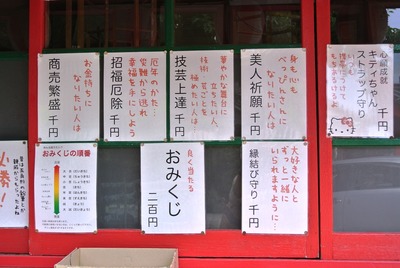 心願成就
キティちゃん
ストラップ守り
千円
身も心も
べっぴんさんに
なりたい人は
美人祈願 千円
華やかな舞台に
立ちたい人、
技術・芸ごとを
極めたい人は…
技芸上達 千円
厄年のかた…
災難から逃れ
幸福を手にしよう
招福厄除 千円
お金持ちに
なりたい人は
商売繁盛 千円
大好きな人と
ずっと一緒に
いられますように…
縁結び守り 千円
良く当たる
おみくじ
二百円
おみくじの順番
必勝!